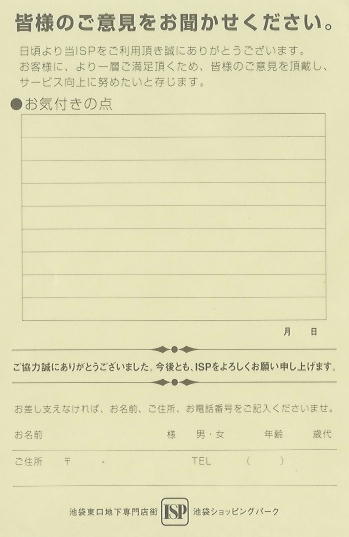 皆様のご意見をお聞かせください。
日頃より当ISPをご利用頂き誠にありがとうございます。
お客様に、より一層ご満足頂くため、皆様のご意見を頂戴し、
サービス向上に努めたいと存じます。
●お気付きの点
月 日
ご協力誠にありがとうございました。今後とも、ISPをよろしくお願い申し上げます。
お差し支えなければ、お名前、ご住所、お電話番号をご記入くださいませ。
お名前 様 男・女 年齢 歳代
ご住所 〒 - TEL ( )
池袋東口地下専門店街 ISP 池袋ショッピングパーク